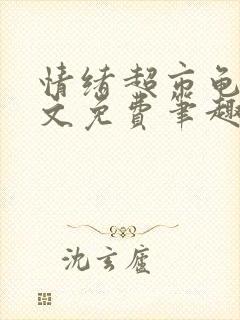 情绪超市龟
文免费笔趣
沈玄庐